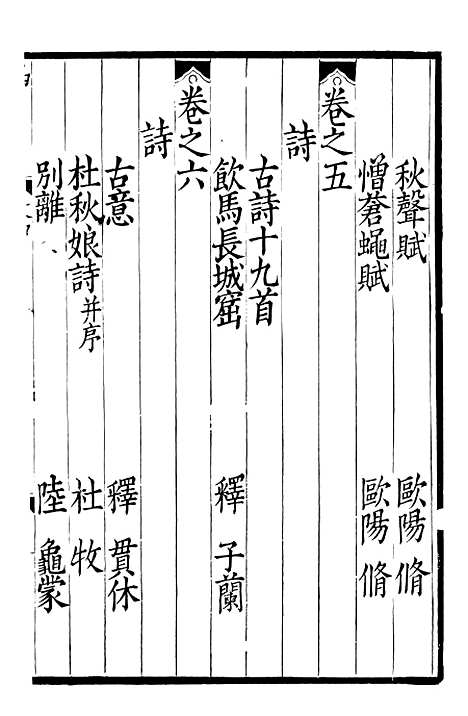 秋聲賦 歐陽脩
憎蒼蠅賦 歐陽脩
卷之五
詩
古詩十九首
飲馬長城窟 釋子蘭
卷之六
詩
古意 釋貫休
杜秋娘詩并序 杜牧
別離 陸龜蒙